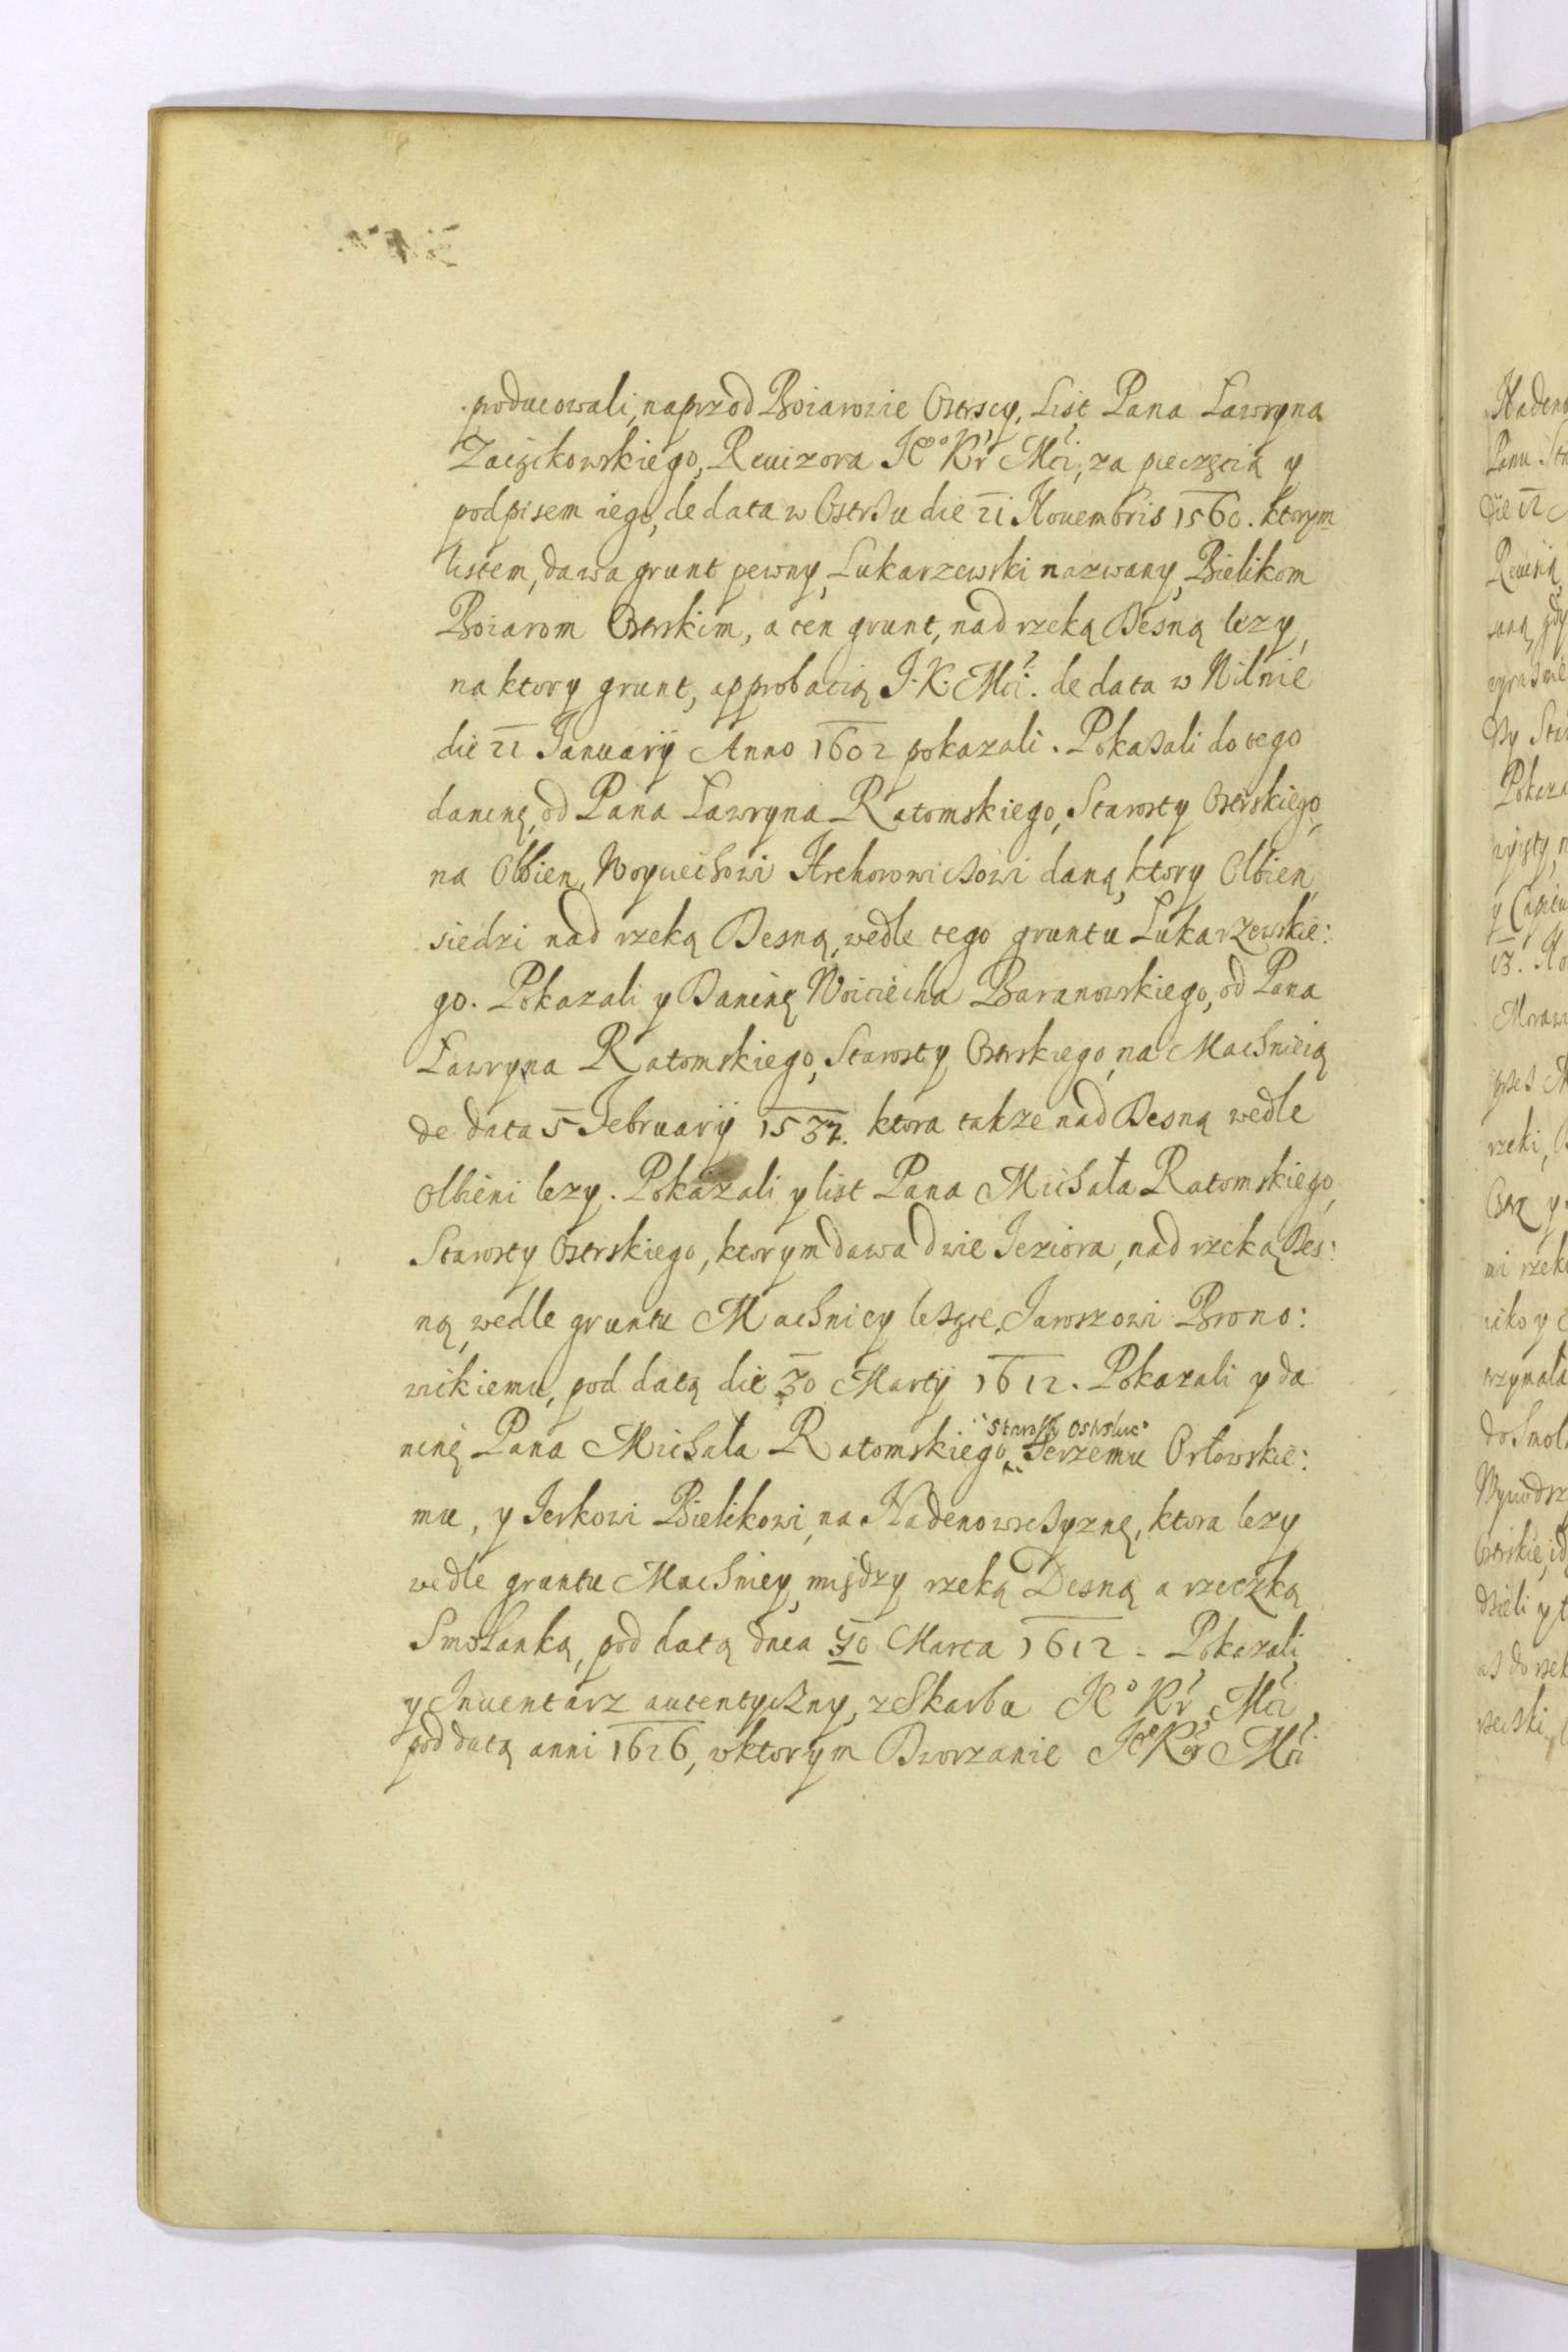 producowali, naprzod Boiarowie Ostrscy, List Pana Lawryna
Revizora Je° Kr Mći, za pieczęcią y
podpisem iego, de data w Ostrzu die 21 Nouembris 1560. ktorym
listem, dawa grunt pewny, Lukarzewski nazwany, Bielikom
Boiarom Ostrskim, a ten grunt, nad rzeką Desną lezy,
na ktory grunt, approbacią J. K. Mći. de data w Wilnie
die 22 Januarij Anno 1602 pokazali. Pokazali do tego
daninę, od Pana Lawryna Ratomskiego, Starosty Ostrskiego,
na Olbien, Woyciechowi Hrehorowiczowi daną, ktory Olbien,
siedzi nad rzeką Desną, wedle tego gruntu Lukarzewskie:
go. Pokazali y Daninę Woiciecha Baranowskiego, od Pana
Lawryna Ratomskiego, Starosty Ostrskiego, na Machnicią
de data 5 Februarij ktora takze nad Desną wedle
Olbieni lezy. Pokazali y list Pana Michała Ratomskiego,
Starosty Ostrskiego, ktorym dawa dwie Jeziora, nad rzeką Des:
ną, wedle gruntu Machnicy lezące, Jaroszowi Brono:
wickiemu, pod datą die 30 Martij 1612. Pokazali y da
ninę Pana Michała Ratomskiego, Starosty Ostrskie° Jerzemu Orłowskie:
mu, y Jerkowi Bielikowi, na Nadenowszczyznę, ktora lezy
wedle gruntu Machnicy, między rzeką Desną a rzeczką
Smolanką, pod datą dnia 30 Marca 1612. Pokazali,
y Inuentarz autentyczny, z Skarbu Je° Kr Mći,
pod datą anni 1626, w ktorym Dworzanie Je° Kr Mći